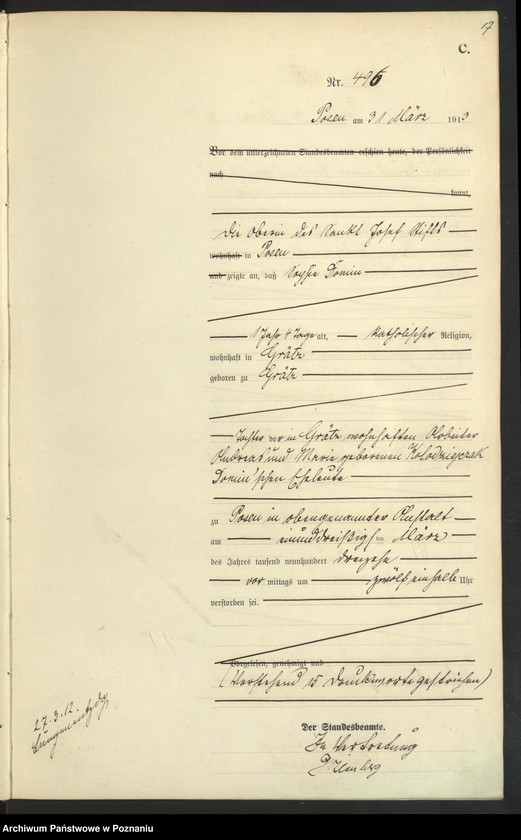 17
C.
Nr. 496
Posen am 31 März 1913
Vor dem unterzeichneten Standesbeamten erschien heute, der Persönlichkeit
nach
kannt,
die Oberin des Sankt Josef Stifts
wohnhaft in Posen
und zeigte an, daß Sophie Domin
1 Jahr 4 Tage alt, katholischer Religion,
wohnhaft in Grätz
geboren zu Grätz
Tochter der in Grätz wohnhaften Arbeiter
Andreas und Marie geborenen Kolodziejczak
Domin'schen Eheleute
zu Posen in obengenannter Anstalt
am einunddreißigsten März
des Jahres tausend neunhundert dreizehn
vor mittags um zwölf einhalb Uhr
verstorben sei.
Vorgelesen, genehmigt und
(Vorstehend 15 Druckworte gestrichen)
Der Standesbeamte.
In Vertretung
27.3.12.
Archiwum Państwowe w Poznaniu